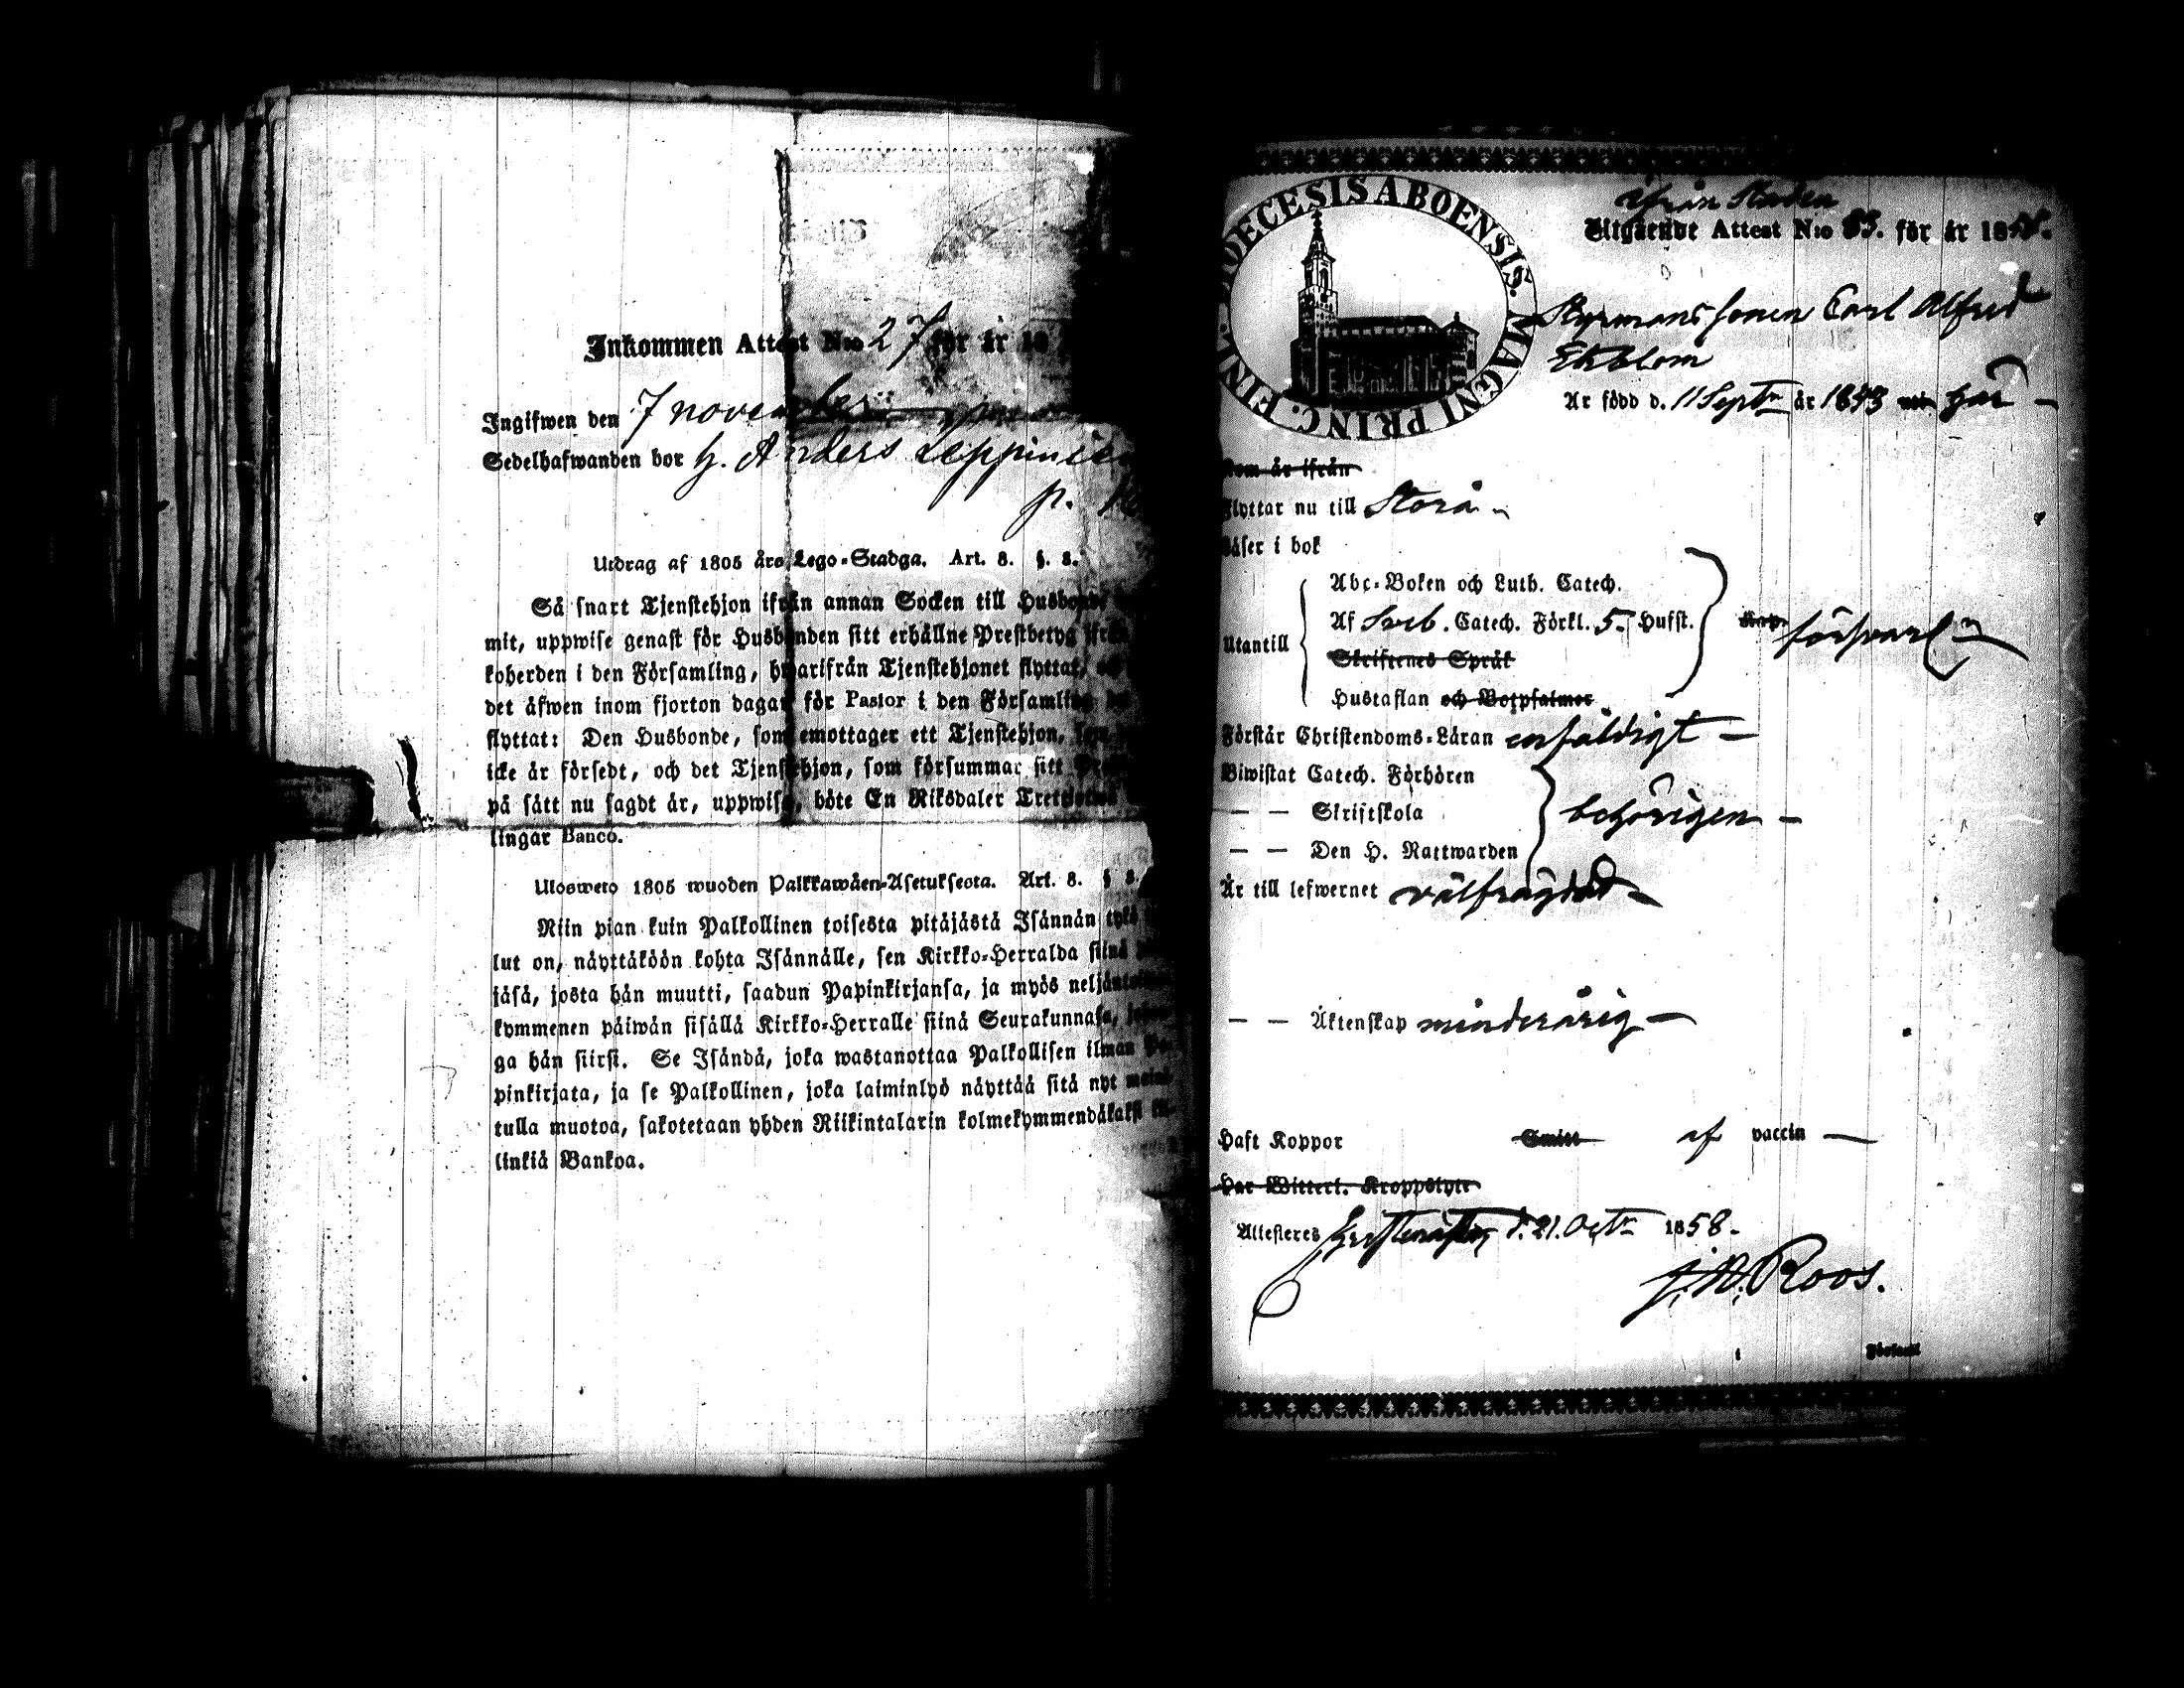 Inkommen Attest N:o 27 för år 18
Ingifwen den 7 november
Sedelhafwanden bor h. Anders Leppinie
p.
Utdrag af 1805 års Lego-Stadga. Art. 8. §. 8.
Så snart Tjenstehjon ifrån annan Socken till Husbond
mit, uppwise genast för Husbonden sitt erhållne Prestbetyg ifrån
koherden i den Församling, hwarifrån Tjenstehjonet flyttat,
det äfwen inom fjorton dagar för Pastor i den Församling
flyttat: Den Husbonde, som emottager ett Tjenstehjon, som
icke är försedt, och det Tjenstehjon, som försummar sitt
på sätt nu sagdt är, uppwisa, böte En Riksdaler Trettiotwå
lingar Banco.
Uloswето 1805 wuoden Palkkawäen-Asetuksesta. Art. 8. § 8.
Niin pian kuin Palkollinen toisesta pitäjästä Isännän tykö
lut on, näyttäköön kohta Isännälle, sen Kirkko-Herralda siinä
jäsä, josta hän muutti, saadun Papinkirjansa, ja myös neljäntoist
kymmenen päiwän sisällä Kirkko-Herralle siinä Seurakunnasa,
ga hän siirsi. Se Isändä, joka wastanottaa Palkollisen ilman Pa-
pinkirjata, ja se Palkollinen, joka laiminlyö näyttää sitä nyt
tulla muotoa, sakotetaan yhden Riikintalarin kolmekymmendäkaksi kil-
linkiä Bankoa.
DIOECESIS ABOENSIS. MAGNI PRINC. FINL.
ifrån Staden
Utgående Attest N:o 83. för år 18
Styrmans sonen Carl Alfred
Ekblom
Är född d. 11 Septr år 1843 här
Som är ifrån
Flyttar nu till Storå
Läser i bok
Abc-Boken och Luth. Catech.
Utantill Af Sveb. Catech. Förkl. 5. Hufst. försvarl
Skriftenes Språk
Hustaflan och Botpsalmer
Förstår Christendoms-Läran enfaldigt
Biwistat Catech. Förhören
— — Skriftskola behörigen
— — Den H. Nattwarden
Är till lefwernet välfrägdad
— — Äktenskap minderårig
Haft Koppor Smitt af vaccin
Har Wittert. Kroppslyte
Attesteres d. 21. Octr 1858.
J. W. Roos.